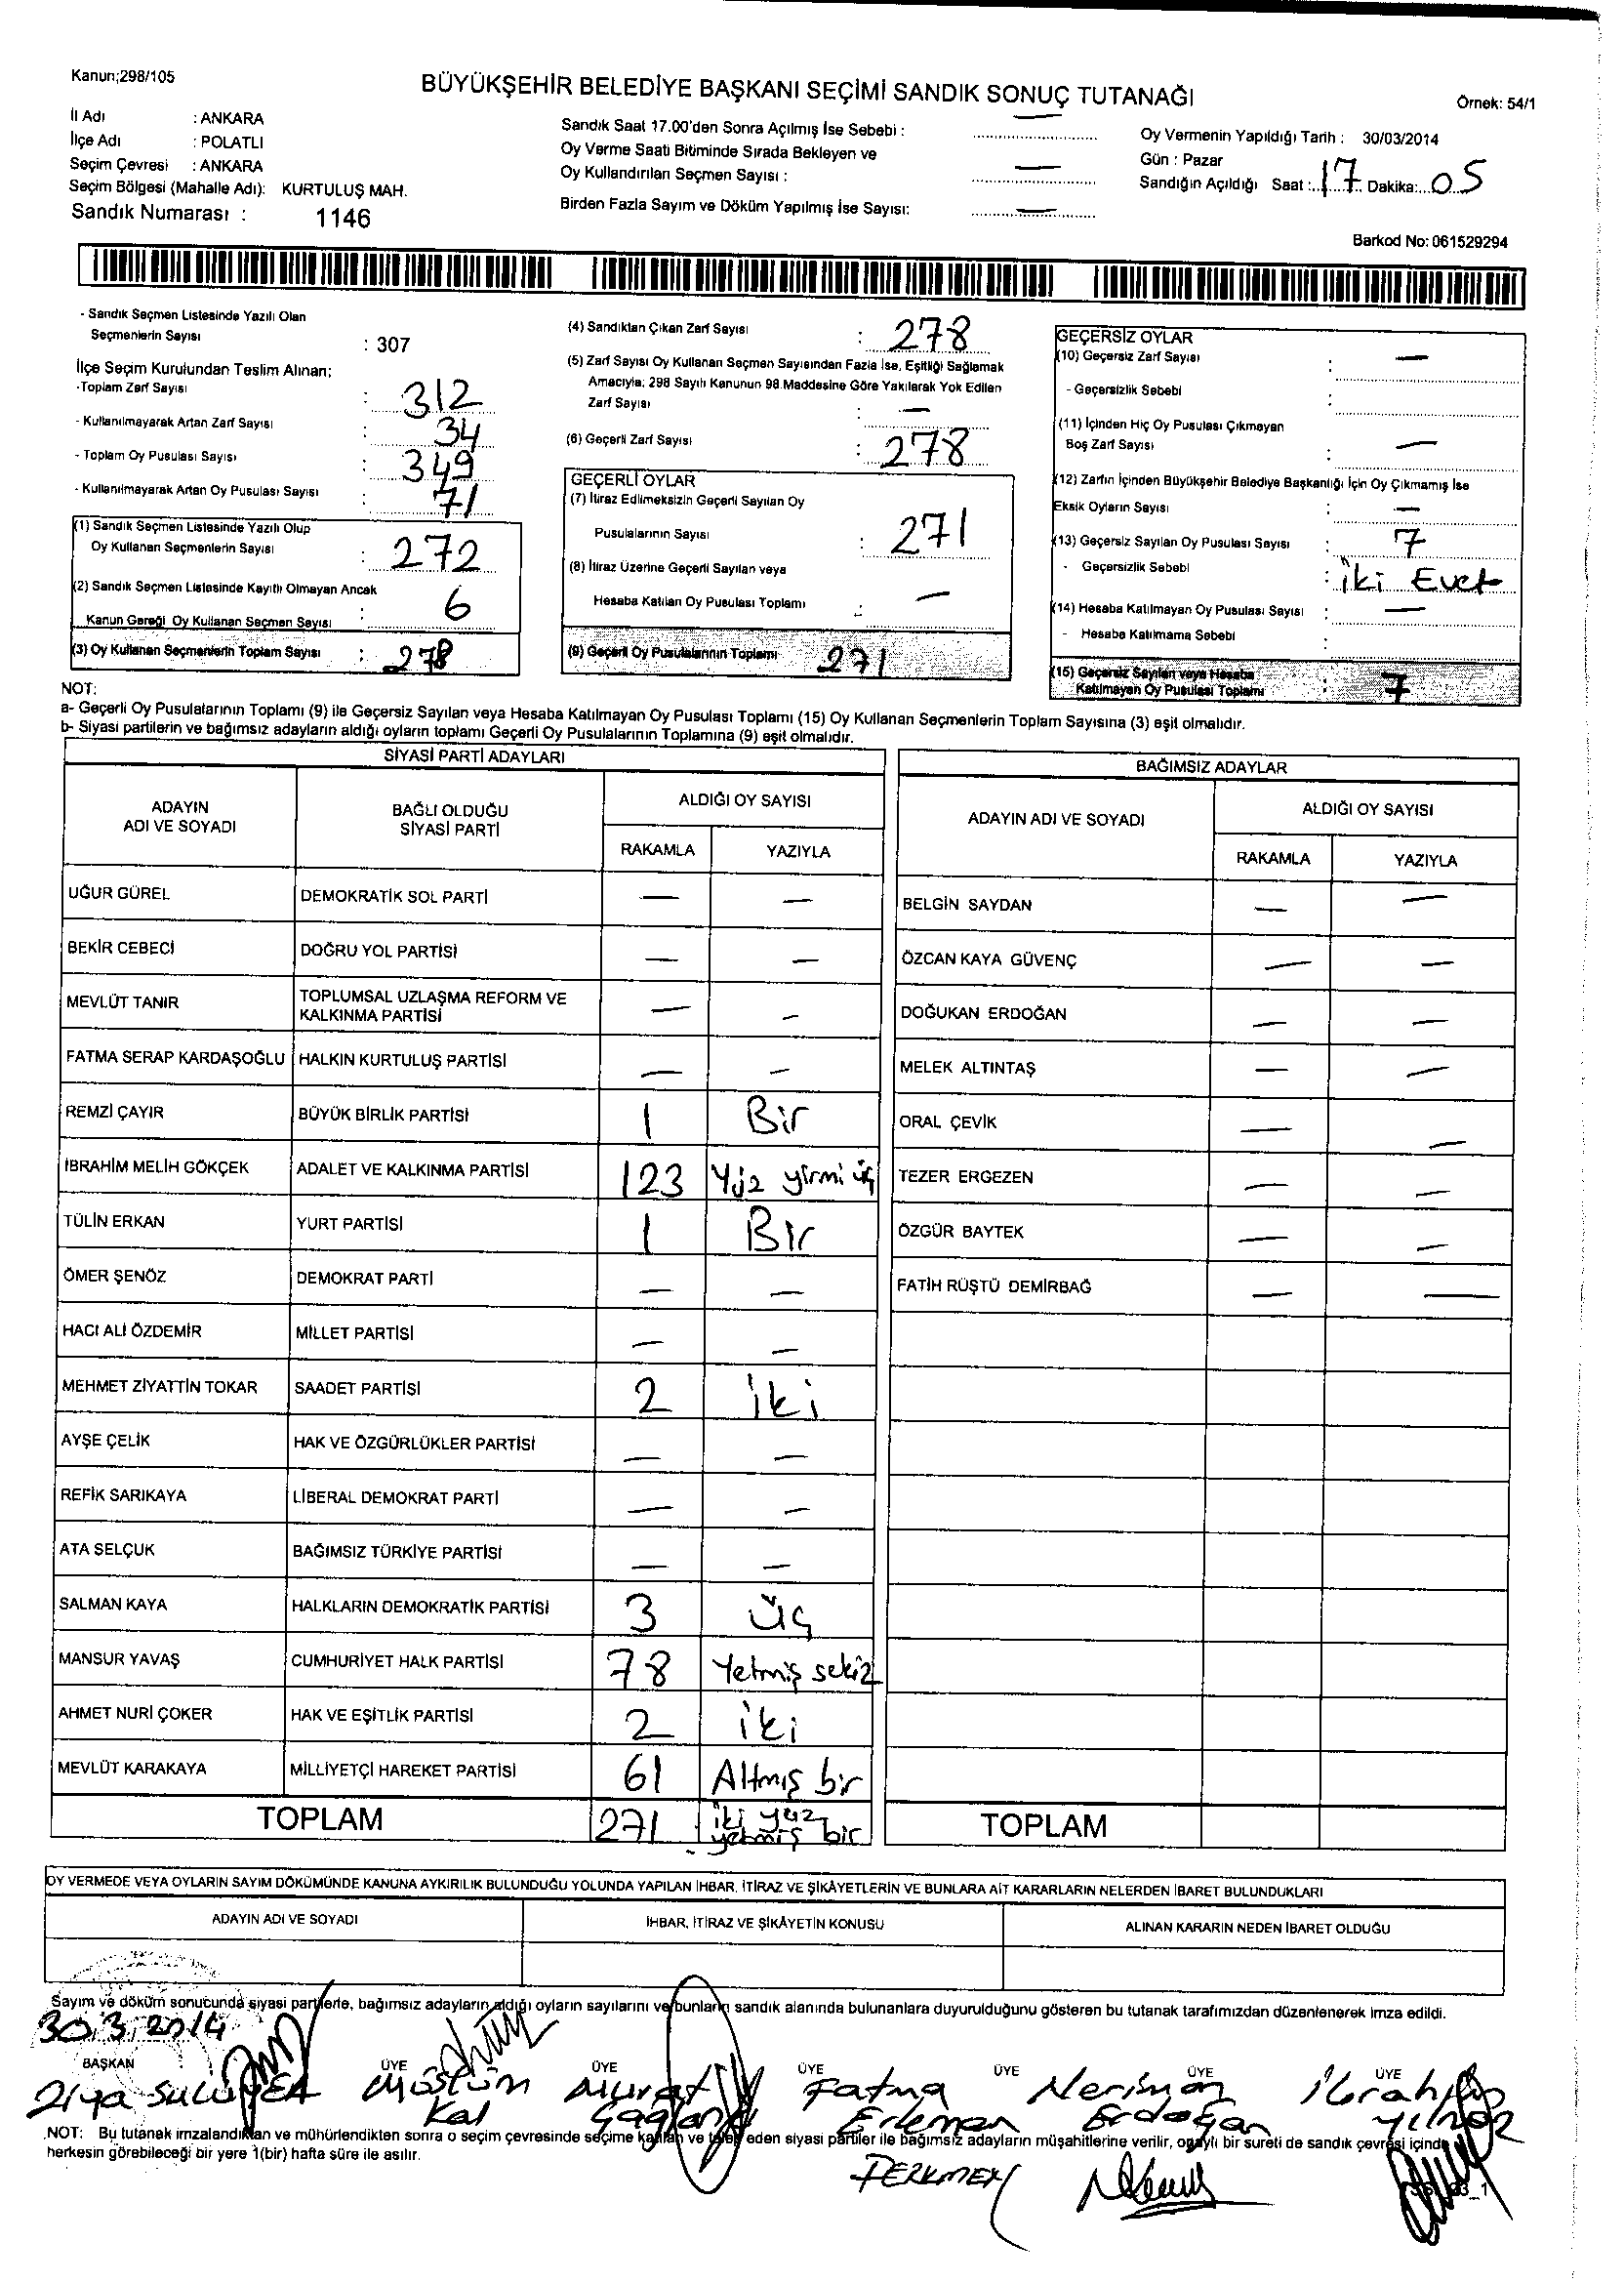 Kanun;298/105
BÜYÜKŞEHİR BELEDİYE BAŞKANI SEÇİMİ SANDIK SONUÇ TUTANAĞI
Örnek: 54/1
İl Adı : ANKARA
İlçe Adı : POLATLI
Seçim Çevresi : ANKARA
Seçim Bölgesi (Mahalle Adı): KURTULUŞ MAH.
Sandık Numarası : 1146
Sandık Saat 17.00'den Sonra Açılmış İse Sebebi : —
Oy Verme Saati Bitiminde Sırada Bekleyen ve
Oy Kullandırılan Seçmen Sayısı : —
Birden Fazla Sayım ve Döküm Yapılmış İse Sayısı: —
Oy Vermenin Yapıldığı Tarih : 30/03/2014
Gün : Pazar
Sandığın Açıldığı Saat : 17 Dakika: 05
Barkod No: 061529294
- Sandık Seçmen Listesinde Yazılı Olan
Seçmenlerin Sayısı : 307
İlçe Seçim Kurulundan Teslim Alınan;
-Toplam Zarf Sayısı : 312
- Kullanılmayarak Artan Zarf Sayısı : 34
- Toplam Oy Pusulası Sayısı : 349
- Kullanılmayarak Artan Oy Pusulası Sayısı : 71
(1) Sandık Seçmen Listesinde Yazılı Olup
Oy Kullanan Seçmenlerin Sayısı : 272
(2) Sandık Seçmen Listesinde Kayıtlı Olmayan Ancak
Kanun Gereği Oy Kullanan Seçmen Sayısı : 6
(3) Oy Kullanan Seçmenlerin Toplam Sayısı : 278
(4) Sandıktan Çıkan Zarf Sayısı : 278
(5) Zarf Sayısı Oy Kullanan Seçmen Sayısından Fazla İse, Eşitliği Sağlamak
Amacıyla; 298 Sayılı Kanunun 98.Maddesine Göre Yakılarak Yok Edilen
Zarf Sayısı : —
(6) Geçerli Zarf Sayısı : 278
GEÇERLİ OYLAR
(7) İtiraz Edilmeksizin Geçerli Sayılan Oy
Pusulalarının Sayısı : 271
(8) İtiraz Üzerine Geçerli Sayılan veya
Hesaba Katılan Oy Pusulası Toplamı : —
(9) Geçerli Oy Pusulalarının Toplamı 271
GEÇERSİZ OYLAR
(10) Geçersiz Zarf Sayısı : —
- Geçersizlik Sebebi :
(11) İçinden Hiç Oy Pusulası Çıkmayan
Boş Zarf Sayısı : —
(12) Zarfın İçinden Büyükşehir Belediye Başkanlığı İçin Oy Çıkmamış İse
Eksik Oyların Sayısı : —
(13) Geçersiz Sayılan Oy Pusulası Sayısı : 7
- Geçersizlik Sebebi : İki Evet
(14) Hesaba Katılmayan Oy Pusulası Sayısı : —
- Hesaba Katılmama Sebebi :
(15) Geçersiz Sayılan veya Hesaba
Katılmayan Oy Pusulası Toplamı : 7
NOT:
a- Geçerli Oy Pusulalarının Toplamı (9) ile Geçersiz Sayılan veya Hesaba Katılmayan Oy Pusulası Toplamı (15) Oy Kullanan Seçmenlerin Toplam Sayısına (3) eşit olmalıdır.
b- Siyasi partilerin ve bağımsız adayların aldığı oyların toplamı Geçerli Oy Pusulalarının Toplamına (9) eşit olmalıdır.
SİYASİ PARTİ ADAYLARI
ADAYIN ADI VE SOYADI BAĞLI OLDUĞU SİYASİ PARTİ ALDIĞI OY SAYISI
RAKAMLA YAZIYLA
UĞUR GÜREL DEMOKRATİK SOL PARTİ — —
BEKİR CEBECİ DOĞRU YOL PARTİSİ — —
MEVLÜT TANIR TOPLUMSAL UZLAŞMA REFORM VE KALKINMA PARTİSİ — —
FATMA SERAP KARDAŞOĞLU HALKIN KURTULUŞ PARTİSİ — —
REMZİ ÇAYIR BÜYÜK BİRLİK PARTİSİ 1 Bir
İBRAHİM MELİH GÖKÇEK ADALET VE KALKINMA PARTİSİ 123 Yüz yirmi üç
TÜLİN ERKAN YURT PARTİSİ 1 Bir
ÖMER ŞENÖZ DEMOKRAT PARTİ — —
HACI ALİ ÖZDEMİR MİLLET PARTİSİ — —
MEHMET ZİYATTİN TOKAR SAADET PARTİSİ 2 İki
AYŞE ÇELİK HAK VE ÖZGÜRLÜKLER PARTİSİ — —
REFİK SARIKAYA LİBERAL DEMOKRAT PARTİ — —
ATA SELÇUK BAĞIMSIZ TÜRKİYE PARTİSİ — —
SALMAN KAYA HALKLARIN DEMOKRATİK PARTİSİ 3 Üç
MANSUR YAVAŞ CUMHURİYET HALK PARTİSİ 78 Yetmiş sekiz
AHMET NURİ ÇOKER HAK VE EŞİTLİK PARTİSİ 2 İki
MEVLÜT KARAKAYA MİLLİYETÇİ HAREKET PARTİSİ 61 Altmış bir
TOPLAM 271 İki yüz yetmiş bir
BAĞIMSIZ ADAYLAR
ADAYIN ADI VE SOYADI ALDIĞI OY SAYISI
RAKAMLA YAZIYLA
BELGİN SAYDAN — —
ÖZCAN KAYA GÜVENÇ — —
DOĞUKAN ERDOĞAN — —
MELEK ALTINTAŞ — —
ORAL ÇEVİK — —
TEZER ERGEZEN — —
ÖZGÜR BAYTEK — —
FATİH RÜŞTÜ DEMİRBAĞ — —
TOPLAM
OY VERMEDE VEYA OYLARIN SAYIM DÖKÜMÜNDE KANUNA AYKIRILIK BULUNDUĞU YOLUNDA YAPILAN İHBAR, İTİRAZ VE ŞİKÂYETLERİN VE BUNLARA AİT KARARLARIN NELERDEN İBARET BULUNDUKLARI
ADAYIN ADI VE SOYADI İHBAR, İTİRAZ VE ŞİKÂYETİN KONUSU ALINAN KARARIN NEDEN İBARET OLDUĞU
Sayım ve döküm sonucunda siyasi partilerle, bağımsız adayların aldığı oyların sayılarını ve bunların sandık alanında bulunanlara duyurulduğunu gösteren bu tutanak tarafımızdan düzenlenerek imza edildi.
30.3.2014
BAŞKAN ÜYE ÜYE ÜYE ÜYE ÜYE ÜYE
Ziya Müslüm Murat Fatma Neriman İbrahim
Kal Çağlan Erkmen Erdoğan Yılmaz
NOT: Bu tutanak imzalandıktan ve mühürlendikten sonra o seçim çevresinde seçime katılan ve talep eden siyasi partiler ile bağımsız adayların müşahitlerine verilir, onaylı bir sureti de sandık çevresi içinde
herkesin görebileceği bir yere 1(bir) hafta süre ile asılır.